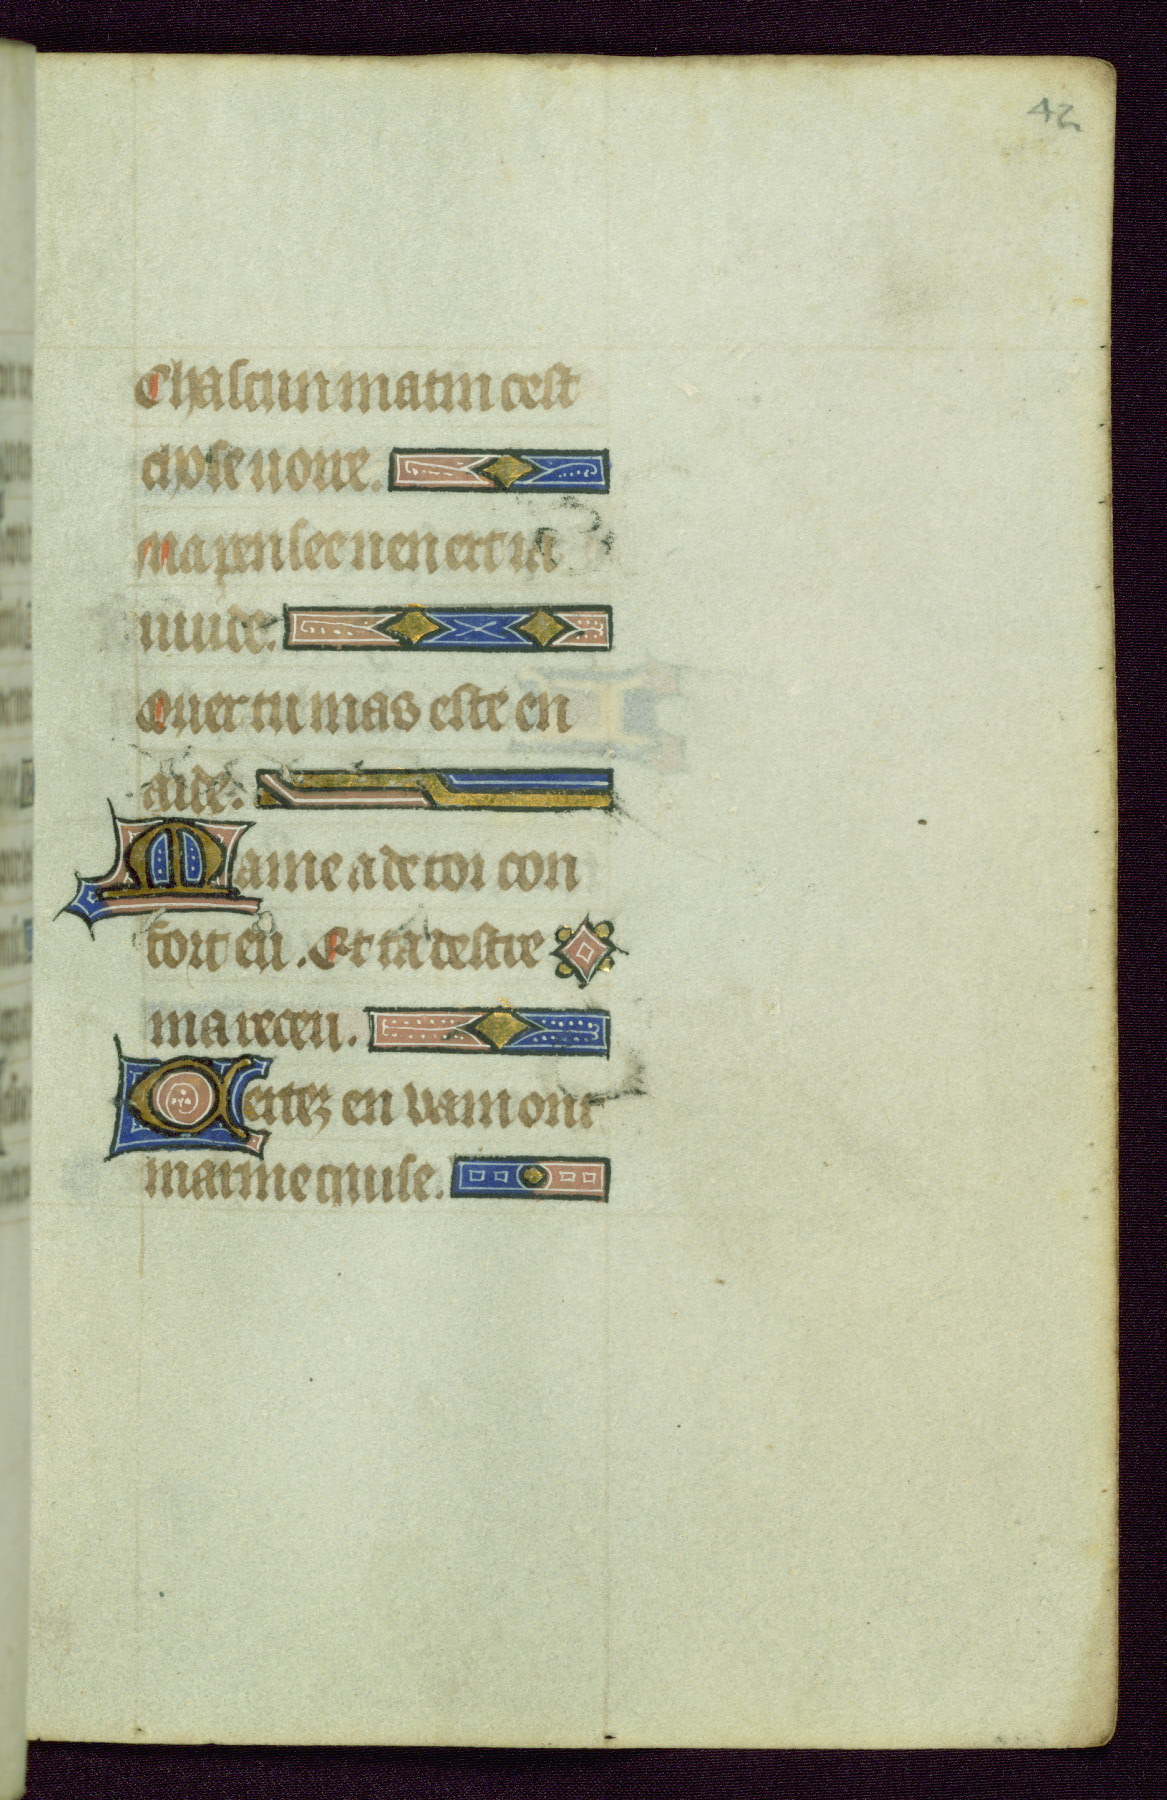 42
Chascun matin cest
chose uoire.
ma pensee nen ert ia
uuide.
Quer tu mas este en
aide.
Mame a de toi con
fort eu. Et ta destre
ma receu.
Certez en vain ont
marme quise.